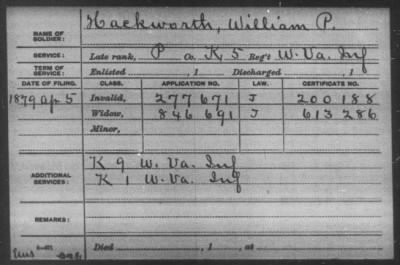 NAME OF SOLDIER: Hackworth, William P.
SERVICE: Late rank, P Co. K, 5 Reg't W. Va. Inf
TERM OF SERVICE: Enlisted , 1 Discharged , 1
DATE OF FILING. CLASS. APPLICATION NO. LAW. CERTIFICATE NO.
1879 Ap 5 Invalid, 277671 J 200188
Widow, 846691 J 613286
Minor,
ADDITIONAL SERVICES: K 9 W. Va. Inf
K 1 W. Va. Inf
REMARKS:
Died , 1 , at